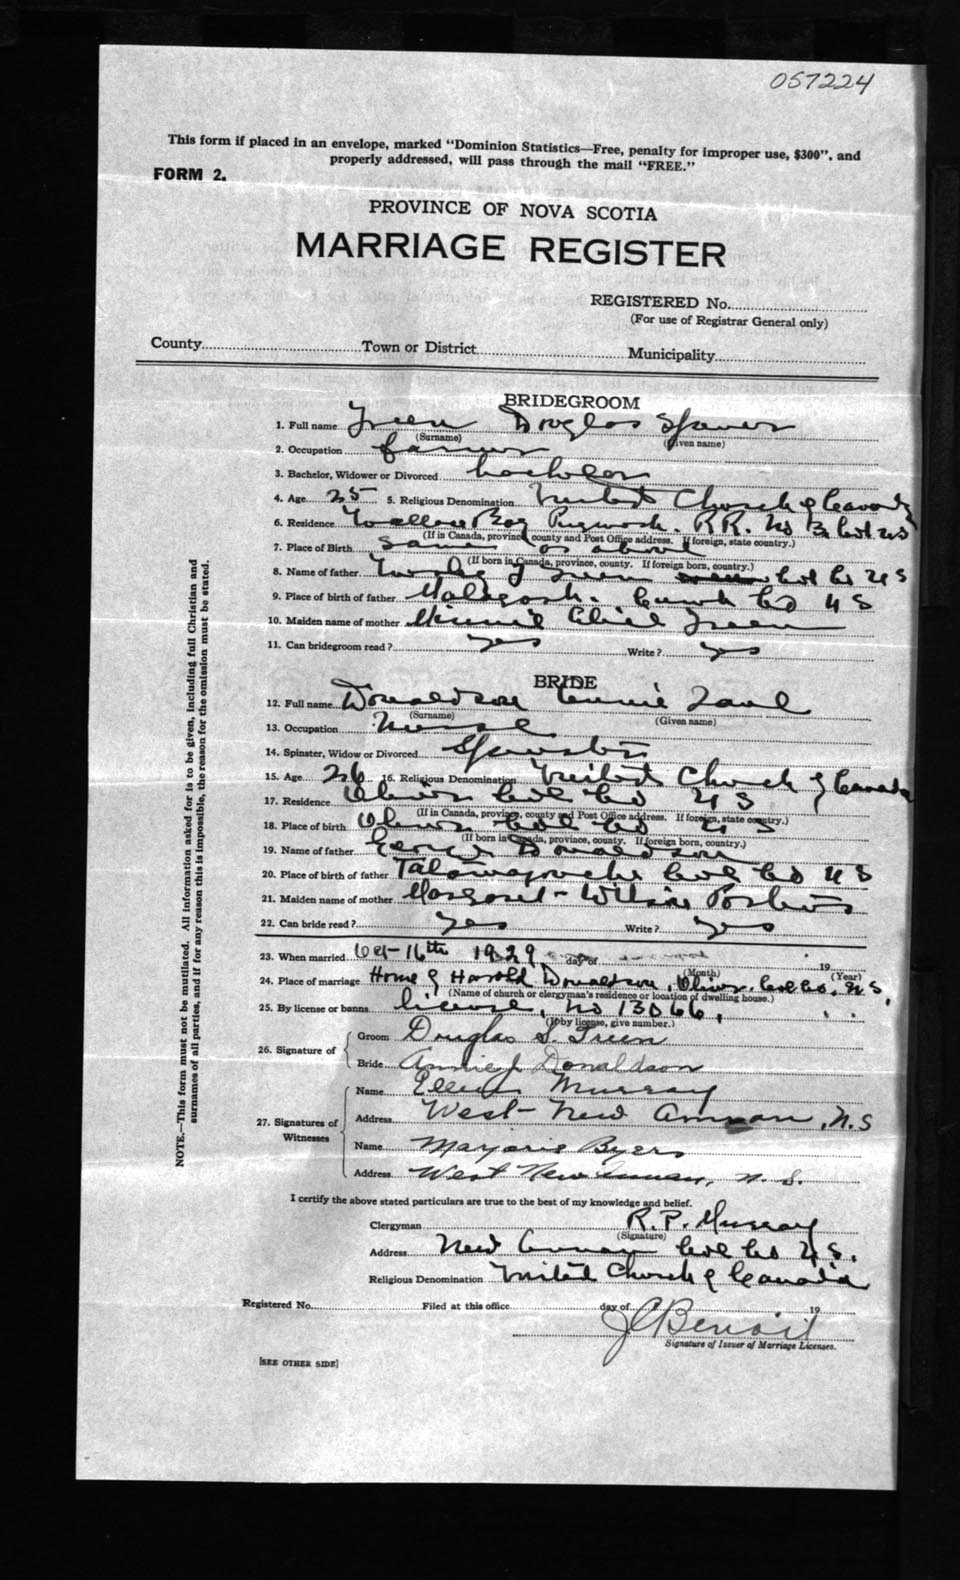 057224
This form if placed in an envelope, marked "Dominion Statistics—Free, penalty for improper use, $300", and
properly addressed, will pass through the mail "FREE."
FORM 2.
PROVINCE OF NOVA SCOTIA
MARRIAGE REGISTER
REGISTERED No.
(For use of Registrar General only)
County Town or District Municipality
BRIDEGROOM
1. Full name Treen Douglas
(Surname) (Given name)
2. Occupation farmer
3. Bachelor, Widower or Divorced bachelor
4. Age 25 5. Religious Denomination United Church of Canada
6. Residence Wallace Bay Pugwash. RR. No 3 NS
(If in Canada, province, county and Post Office address. If foreign, state country.)
7. Place of Birth same as above
(If born in Canada, province, county. If foreign born, country.)
8. Name of father Treen Co NS
9. Place of birth of father Malagash. Co NS
10. Maiden name of mother Minnie Treen
11. Can bridegroom read? yes Write? yes
BRIDE
12. Full name Donaldson Annie
(Surname) (Given name)
13. Occupation Nurse
14. Spinster, Widow or Divorced Spinster
15. Age 26 16. Religious Denomination United Church of Canada
17. Residence Oliver Col Co NS
(If in Canada, province, county and Post Office address. If foreign, state country.)
18. Place of birth Oliver Col Co NS
(If born in Canada, province, county. If foreign born, country.)
19. Name of father George Donaldson
20. Place of birth of father Tatamagouche Col Co NS
21. Maiden name of mother Margaret Wilson
22. Can bride read? yes Write? yes
23. When married Oct 16th 1929 day of 19
(Month) (Year)
24. Place of marriage Home of Harold Donaldson, Oliver, Col Co, NS,
(Name of church or clergyman's residence or location of dwelling house.)
25. By license or banns license, No 13066,
(If by license, give number.)
26. Signature of Groom Douglas S. Treen
Bride Annie J Donaldson
27. Signatures of Witnesses
Name Ellen Murray
Address West New Annan, N.S
Name Marjorie Byers
Address West New Annan, N. S.
I certify the above stated particulars are true to the best of my knowledge and belief.
Clergyman R. P. Murray
(Signature)
Address New Annan Col Co NS.
Religious Denomination United Church of Canada
Registered No. Filed at this office day of 19
J C Benoit
Signature of Issuer of Marriage Licenses.
[SEE OTHER SIDE]
NOTE.—This form must not be mutilated. All information asked for is to be given, including full Christian and
surnames of all parties, and if for any reason this is impossible, the reason for the omission must be stated.